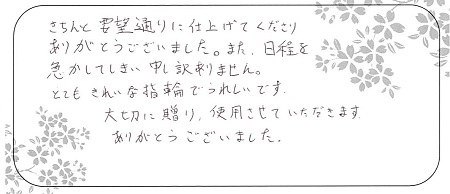 きちんと要望通りに仕上げてくださり
ありがとうございました。また、日程を
急かしてしまい申し訳ありません。
とてもきれいな指輪でうれしいです。
大切に贈り、使用させていただきます。
ありがとうございました。